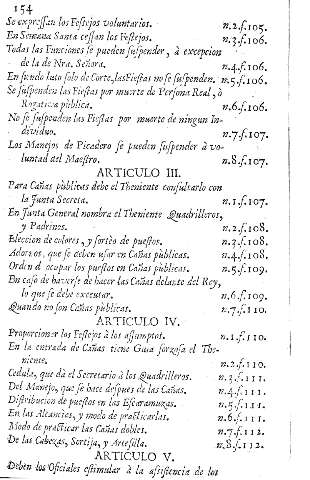 154
Se expreſſan los Feſtejos voluntarios. n.2.f.105.
En Semana Santa ceſſan los Feſtejos. n.3.f.106.
Todas las Funciones ſe pueden ſuſpender, à excepcion
de la de Nra. Señora. n.4.f.106.
En ſiendo luto ſolo de Corte, las Fieſtas no ſe ſuſpenden. n.5.f.106.
Se ſuſpenden las Fieſtas por muerte de Perſona Real, ò
Rogativa pùblica. n.6.f.106.
No ſe ſuſpenden las Fieſtas por muerte de ningun In-
dividuo. n.7.f.107.
Los Manejos de Picadero ſe pueden ſuſpender à vo-
luntad del Maeſtro. n.8.f.107.
ARTICULO III.
Para Cañas pùblicas debe el Theniente conſultarlo con
la Junta Secreta. n.1.f.107.
En Junta General nombra el Theniente Quadrilleros,
y Padrinos. n.2.f.108.
Eleccion de colores, y ſortèo de pueſtos. n.3.f.108.
Adornos, que ſe deben uſar en Cañas pùblicas. n.4.f.108.
Orden d ocupar los pueſtos en Cañas pùblicas. n.5.f.109.
En caſo de haverſe de hacer las Cañas delante del Rey,
lo que ſe debe executar. n.6.f.109.
Quando no ſon Cañas pùblicas. n.7.f.110.
ARTICULO IV.
Proporcionar los Feſtejos à los aſſumptos. n.1.f.110.
En la entrada de Cañas tiene Guia forzoſa el The-
niente. n.2.f.110.
Cedula, que dà el Secretario à los Quadrilleros. n.3.f.111.
Del Manejo, que ſe hace deſpues de las Cañas. n.4.f.111.
Diſtribucion de pueſtos en los Eſcaramuzas. n.5.f.111.
En las Alcancìas, y modo de practicarlas. n.6.f.111.
Modo de practicar las Cañas dobles. n.7.f.112.
De las Cabezas, Sortija, y Arteſilla. n.8.f.112.
ARTICULO V.
Deben los Oficiales eſtimular à la aſiſtencia de los